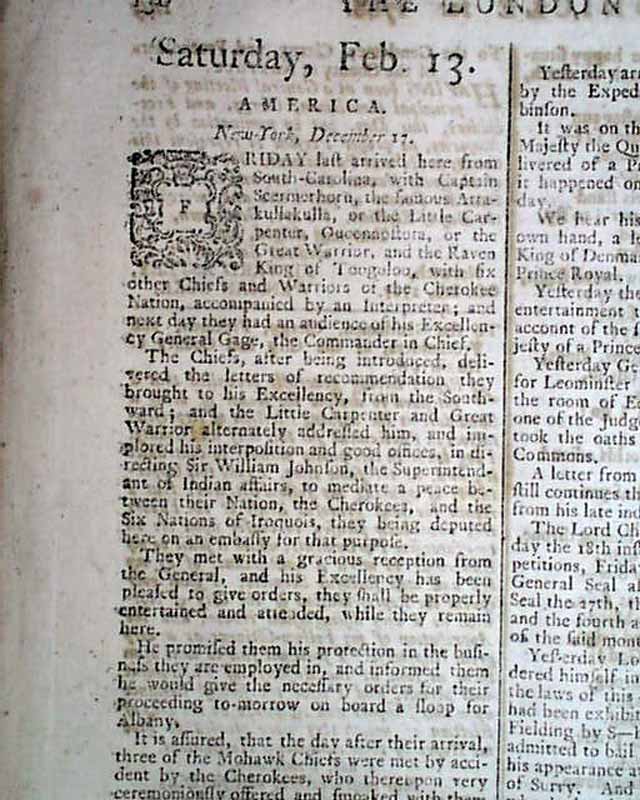 THE LONDON
Saturday, Feb. 13.
AMERICA.
New-York, December 17.
FRIDAY laſt arrived here from
South-Carolina, with Captain
Scermerhorn, the famous Atta-
kullakulla, or the Little Car-
penter, or the
Great Warrior, and the Raven
King of Toogoloo, with ſix
other Chiefs and Warriors of the Cherokee
Nation, accompanied by an Interpreter; and
next day they had an audience of his Excellen-
cy General Gage, the Commander in Chief.
The Chiefs, after being introduced, deli-
vered the letters of recommendation they
brought to his Excellency, from the South-
ward; and the Little Carpenter and Great
Warrior alternately addreſſed him, and im-
plored his interpoſition and good offices, in di-
recting Sir William Johnſon, the Superintend-
ant of Indian affairs, to mediate a peace be-
tween their Nation, the Cherokees, and the
Six Nations of Iroquois, they being deputed
here on an embaſſy for that purpoſe.
They met with a gracious reception from
the General, and his Excellency has been
pleaſed to give orders, they ſhall be properly
entertained and attended, while they remain
here.
He promiſed them his protection in the buſi-
neſs they are employed in, and informed them
he would give the neceſſary orders for their
proceeding to-morrow on board a ſloop for
Albany.
It is aſſured, that the day after their arrival,
three of the Mohawk Chiefs were met by acci-
dent by the Cherokees, who thereupon very
ceremoniouſly offered and ſmoaked with them
Yeſterday
by the Exped
binſon.
It was on th
Majeſty the Qu
livered of a P
it happened on
day.
We hear his
own hand, a
King of Denma
Prince Royal.
Yeſterday the
entertainment
account of the
jeſty of a Prince
Yeſterday
for Leominſter
the room of
one of the Judge
took the oaths
Commons.
A letter from
ſtill continues th
from his late
The Lord
day the 18th inſt
petitions, Frida
General Seal
Seal the 27th, th
and the fourth a
of the ſaid mon
Yeſterday
dered himſelf in
the laws of this
had been exhibi
Fielding by S—
admitted to bail
his appearance
of Surry. And